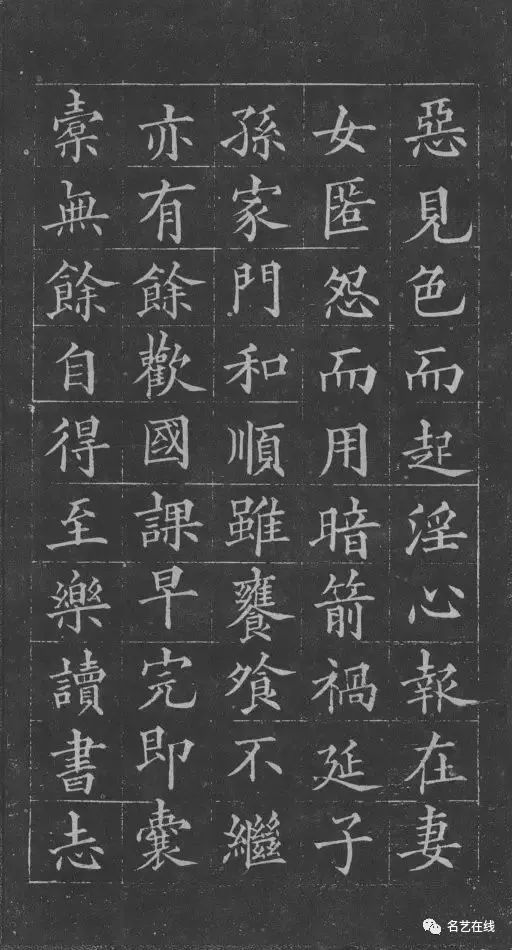 惡見色而起淫心報在妻
女匿怨而用暗箭禍延子
孫家門和順雖饔飧不繼
亦有餘歡國課早完即囊
橐無餘自得至樂讀書志
名艺在线